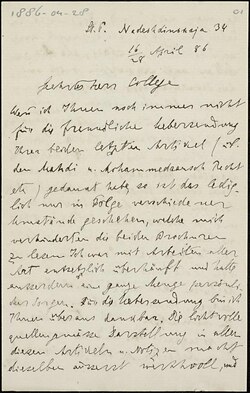 1886-04-28
01
St. P. Nadeshdinskaja 34
16/28 April 86
Geehrter Herr College
Wenn ich Ihnen noch immer nicht
für die freundliche Uebersendung
Ihrer beiden letzten Artikel (über
den Mahdi u. Mohammedaansch Recht
etc) gedankt habe, so ist das ledig-
lich nur in Folge verschiedener
Umstände geschehen, welche mich
verhinderten die beiden Brochuren
zu lesen. Ich war mit Arbeiten aller
Art entsetzlich überhäuft und hatte
ausserdem eine ganze Menge persönli-
cher Sorgen. Für die Uebersendung bin ich
Ihnen überaus dankbar. Die lichtvolle
quellengemässe Darstellung in allen
diesen Artikeln u. Notizen macht
dieselben äusserst werthvoll, und